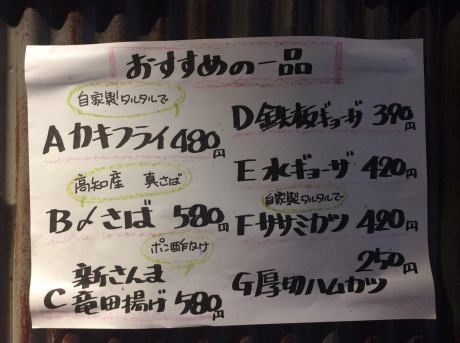 おすすめの一品
自家製タルタルで
A カキフライ 480円
高知産 真さば
B 〆さば 580円
ポン酢だけ
新さんま
C 竜田揚げ 580円
D 鉄板ギョーザ 390円
E 水ギョーザ 420円
自家製タルタルで
F ササミカツ 420円
250円
G 厚切ハムカツ